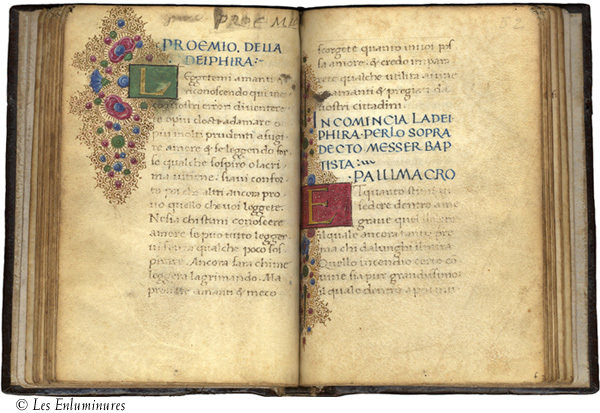 PROEMIO, DELLA
DEIPHIRA:~
L Eggetemi amanti &
riconoscendo qui me
uostri errori diuentere
te o piu docti adamare o
piu molto prudenti afugi
re amore & se leggendo for
se qualche sospiro o lacri
ma uitiene siaui confor
to poi che altri ancora pro
uo quello che uoi leggete
Ne sia chi stimi conoscere
amore se puo tutto legger
ui senza qualche poco sos
pirare. Ancora sara chi me
leggera lagrimando. Ma
pro amanti & meco
scorgete quanto in uoi pos
sa amore & credo impara
rete qualche utilita
amanti & pregiati da
nostri cittadini
INCOMINCIA LADEI
PHIRA. PERLO SOPRA
DECTO MESSER BAP
TISTA:
·PALIMACRO
E
uedere dentro ame
graue quel
il quale ancora tanto pre
ma chi dalunghi il mira
Quello incendio certo co
uiene sia pur grandissimo
il quale dentro apo
© Les Enluminures